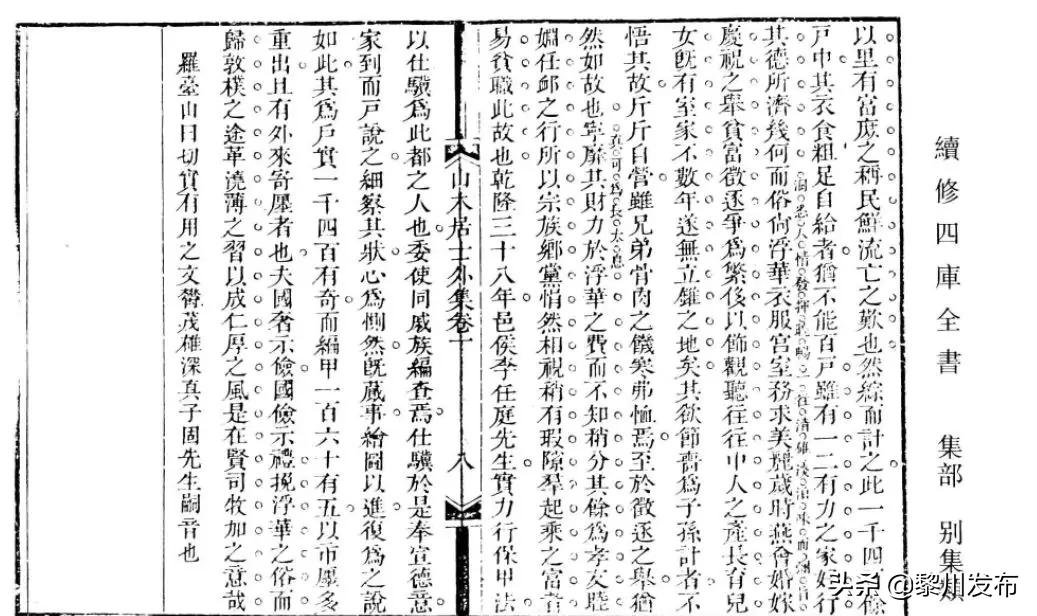 續修四庫全書 集部 別集類
以里有富庶之稱民鮮流亡之歎也然綜而計之此一千四餘
戸中其衣食粗足自給者猶不能百戸雖有一二有力之家好行
其德所濟幾何而俗尚浮華衣服宮室務求美麗歲時燕會婚嫁
洞悉人情發揮明暢一往清雄
慶祝之舉貧富徵逐爭為繁侈以飾觀聽往往中人之產長育兒
女旣有室家不數年遂無立錐之地矣其欲節嗇為子孫計者不
悟其故斤斤自營雖兄弟骨肉之饑寒弗恤焉至於徵逐之舉猶
真可為長太息
然如故也寧靡其財力於浮華之費而不知稍分其餘為孝友睦
婣任卹之行所以宗族鄉黨悄然相視稍有瑕隙羣起乘之富者
易貧職此故也乾隆三十八年邑侯李任庭先生實力行保甲法
山木居士外集卷一 八
以仕驥為此都之人也委使同戚族編查焉仕驥於是奉宣德意
家到而戸說之細察其狀心為惻然旣蕆事繪圖以進復為之說
如此其為戸實一千四百有奇而編甲一百六十有五以市廛多
重出且有外來寄廛者也夫國奢示儉國儉示禮挽浮華之俗而
歸敦樸之途革澆薄之習以成仁厚之風是在賢司牧加之意哉
羅臺山曰切實有用之文茂雄深真子固先生嗣音也
头条 @黎州发布